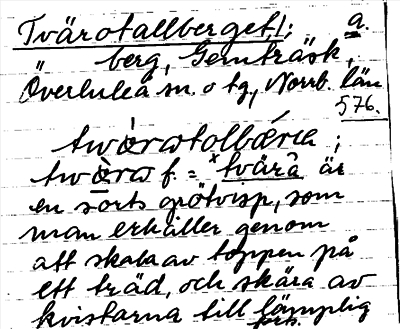 Tvärotallberget!; a.
berg, Gernträsk,
Överluleå sn. o tg, Norrb. län
576.
twæ̀rɷtolbǽrɩɛ ;
twæ̀rɷ f. = ˣtvärâ är
en sorts grötvisp, som
man erhåller genom
att skala av toppen på
ett träd, och skära av
kvistarna till lämplig